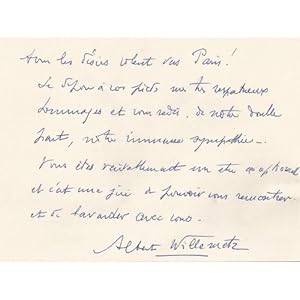 Tous les désirs volent vers Paris!
Je dépose à vos pieds mes très respectueux
hommages et vous redis, de notre double
part, notre immense sympathie.
Vous êtes véritablement un être exceptionnel
et c'est une joie de pouvoir vous rencontrer
et de bavarder avec vous.
Albert Willemetz